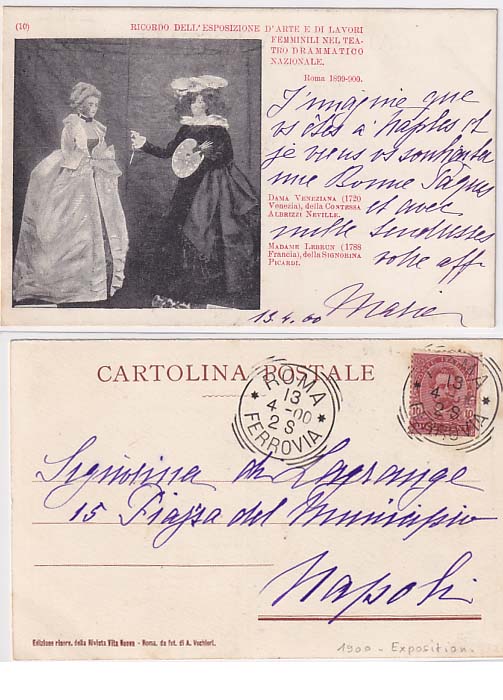 (10)
RICORDO DELL'ESPOSIZIONE D'ARTE E DI LAVORI
FEMMINILI NEL TEA-
TRO DRAMMATICO
NAZIONALE.
Roma 1899-900.
J'imagine que
vs êtes à Naples et
je viens vs souhaiter
une Bonne Pâques
et avec
mille tendresses
votre aff
Marie
13.4.00
DAMA VENEZIANA (1720
Venezia), della CONTESSA
ALBRIZZI NEVILLE.
MADAME LEBRUN (1788
Francia), della SIGNORINA
PICARDI.
CARTOLINA POSTALE
ROMA
13
4-00
2S
FERROVIA
ROMA
13
4
2S
10
10
Signorina de Lagrange
15 Piazza del Municipio
Napoli
Edizione riserv. della Rivista Vita Nuova - Roma, da fot. di A. Vochieri.
1900 - Exposition.